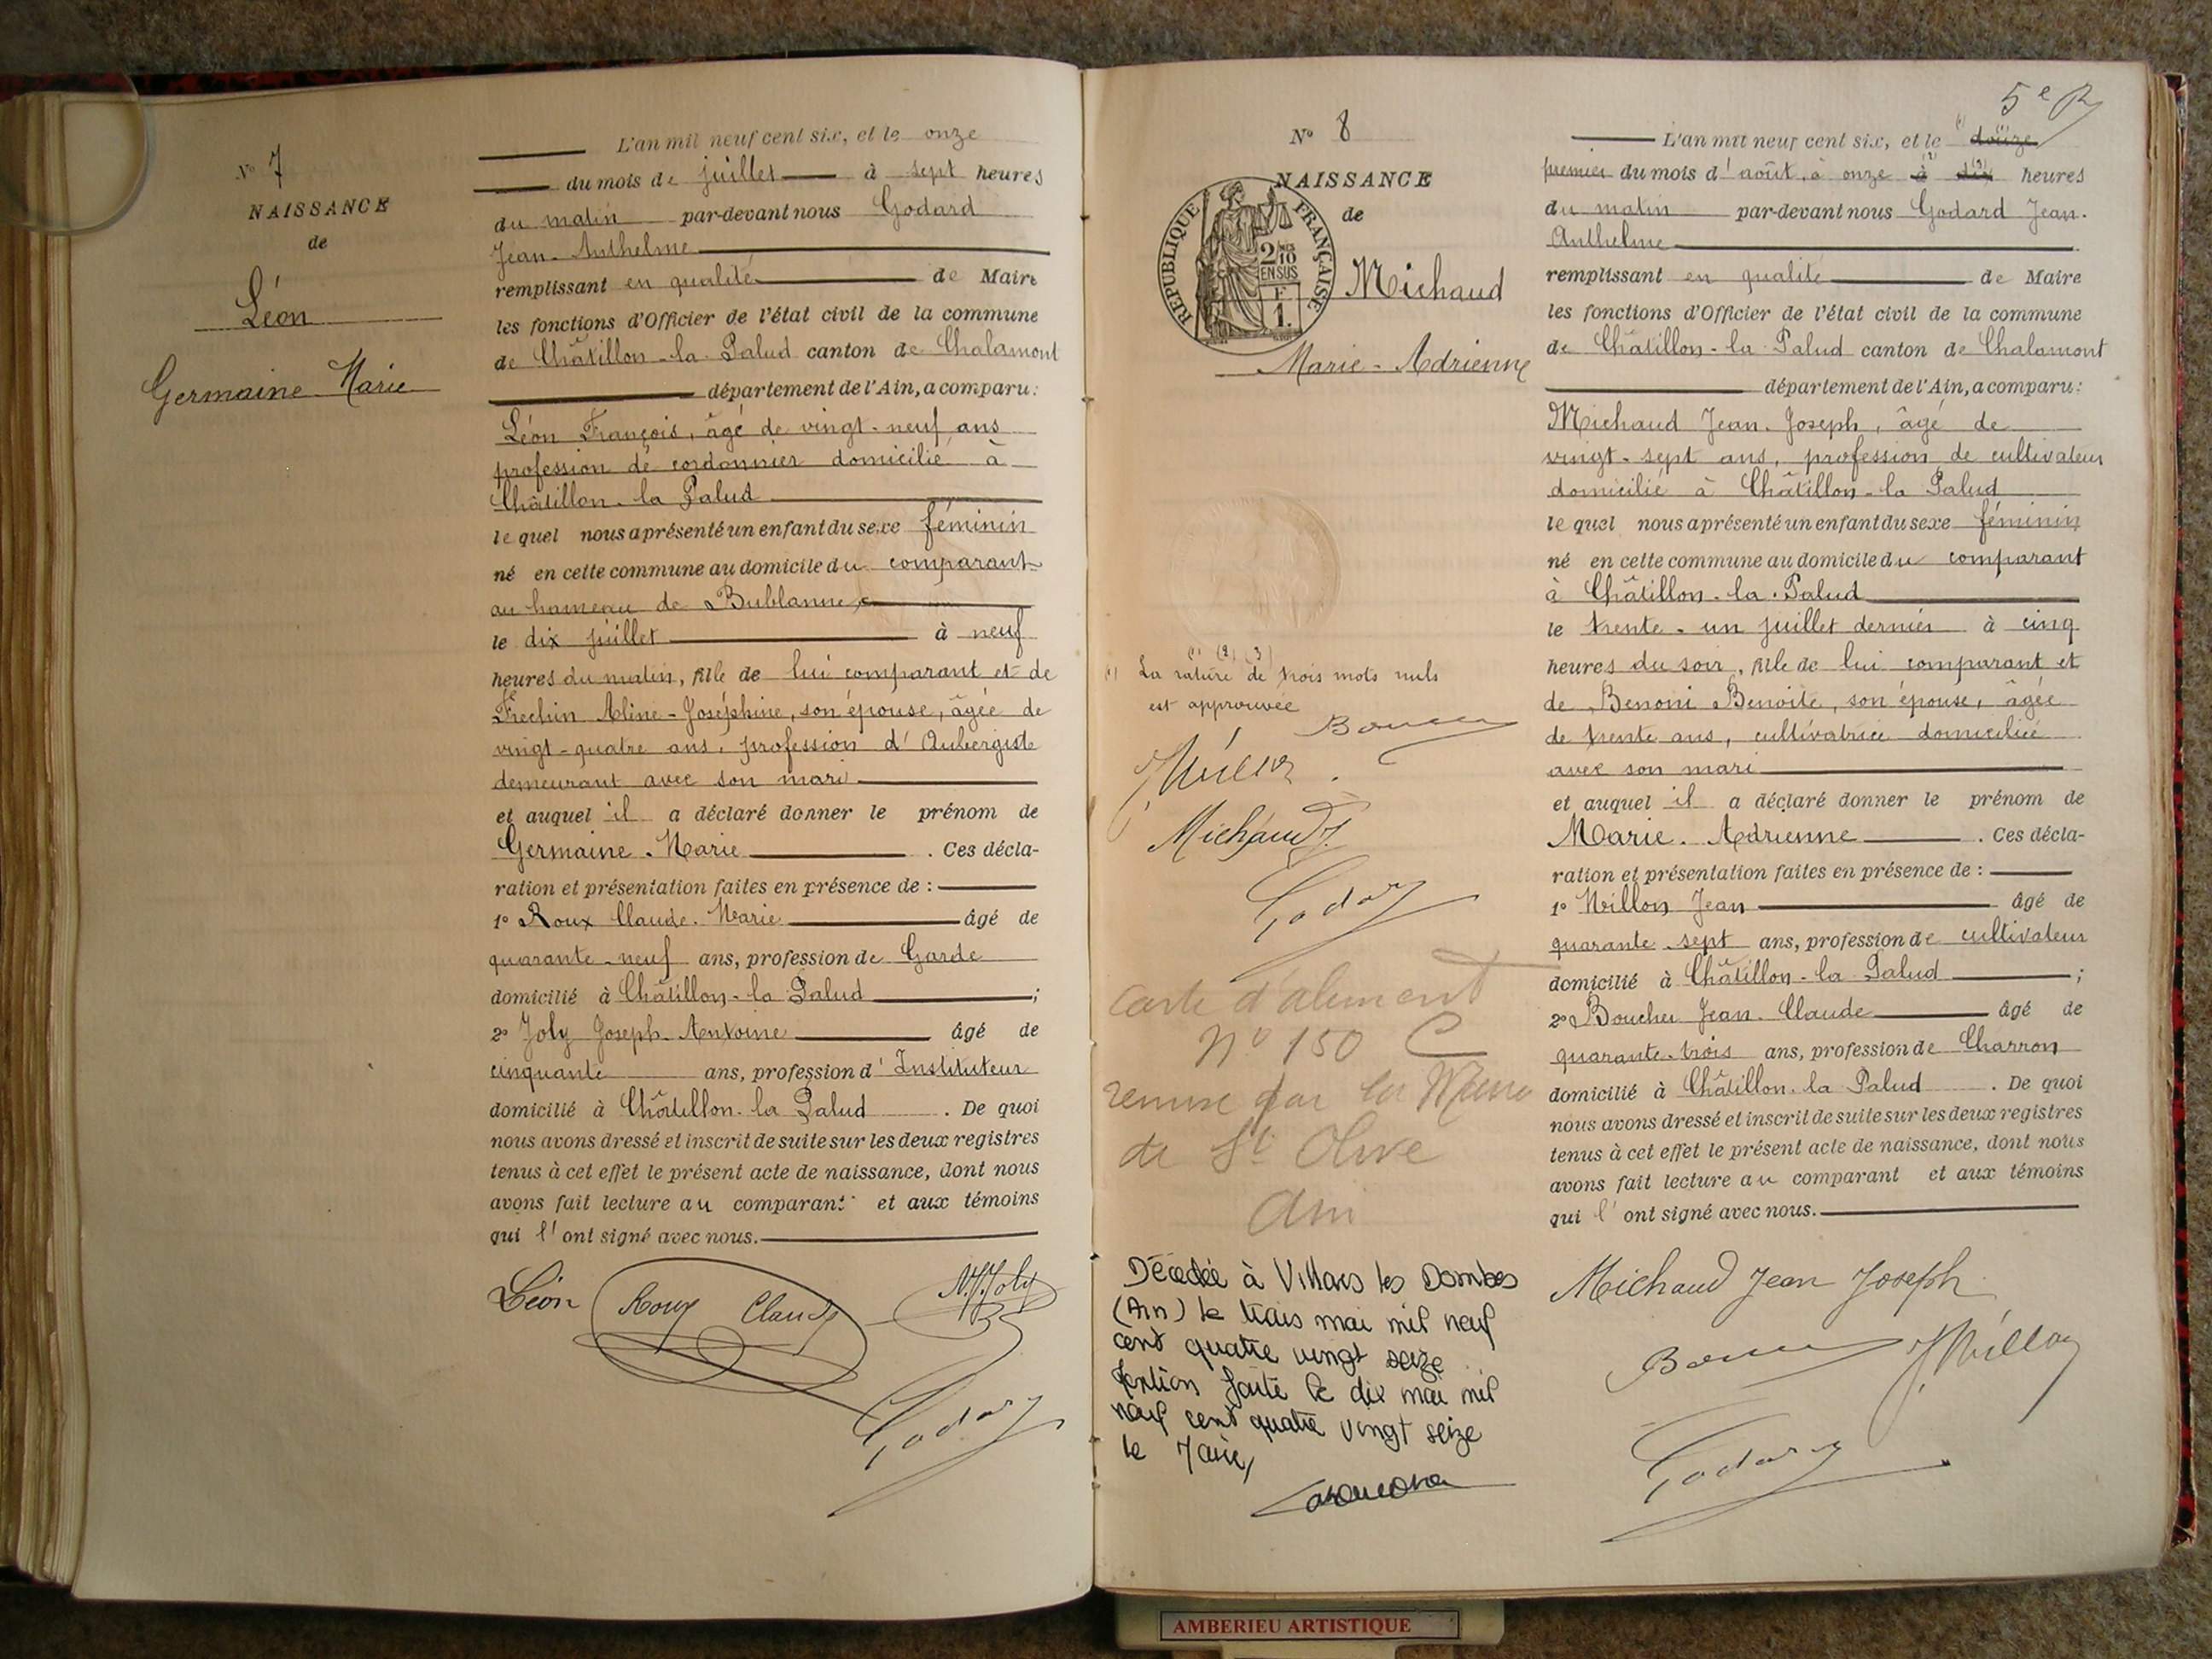 N° 7
NAISSANCE
de
Léon
Germaine Marie
L'an mil neuf cent six, et le onze
du mois de juillet à sept heures
du matin par-devant nous Godard
Jean-Anthelme
remplissant en qualité de Maire
les fonctions d'Officier de l'état civil de la commune
de Châtillon-la-Palud canton de Chalamont
département de l'Ain, a comparu:
Léon François, âgé de vingt-neuf ans
profession de cordonnier domicilié à
Châtillon-la Palud
le quel nous a présenté un enfant du sexe féminin
né en cette commune au domicile du comparant
au hameau de Bublanne,
le dix juillet à neuf
heures du matin, fille de lui comparant et de
Frechin Aline-Joséphine, son épouse, âgée de
vingt-quatre ans, profession d'Aubergiste
demeurant avec son mari
et auquel il a déclaré donner le prénom de
Germaine-Marie. Ces décla-
ration et présentation faites en présence de :
1° Roux Claude-Marie âgé de
quarante-neuf ans, profession de Garde
domicilié à Châtillon-la Palud ;
2° Joly Joseph-Antoine âgé de
cinquante ans, profession d'Instituteur
domicilié à Châtillon-la Palud. De quoi
nous avons dressé et inscrit de suite sur les deux registres
tenus à cet effet le présent acte de naissance, dont nous
avons fait lecture au comparant et aux témoins
qui l'ont signé avec nous.
Léon Roux Claude Joly
Godard
5e
N° 8
NAISSANCE
de
RÉPUBLIQUE FRANÇAISE
2/10
EN SUS
F
1.
Michaud
Marie-Adrienne
(1) (2) (3)
(1) La rature de trois mots nuls
est approuvée
Boucher
JMillon
Michaud J.
Godard
Carte d'aliment
N° 150 C
remise par la Mairie
de St Olive
Ain
Décédée à Villars les Dombes
(Ain) le trois mai mil neuf
cent quatre vingt seize
Mention faite le dix mai mil
neuf cent quatre vingt seize
le Maire,
L'an mil neuf cent six, et le (1) douze
premier du mois d'août, à onze (2) à (3) dix heures
du matin par-devant nous Godard Jean-
Anthelme
remplissant en qualité de Maire
les fonctions d'Officier de l'état civil de la commune
de Châtillon-la-Palud canton de Chalamont
département de l'Ain, a comparu:
Michaud Jean-Joseph, âgé de
vingt-sept ans, profession de cultivateur
domicilié à Châtillon-la Palud
le quel nous a présenté un enfant du sexe féminin
né en cette commune au domicile du comparant
à Châtillon-la-Palud
le trente-un juillet dernier à cinq
heures du soir, fille de lui comparant et
de Benoni Benoite, son épouse, âgée
de trente ans, cultivatrice domiciliée
avec son mari
et auquel il a déclaré donner le prénom de
Marie-Adrienne. Ces décla-
ration et présentation faites en présence de :
1° Millon Jean âgé de
quarante-sept ans, profession de cultivateur
domicilié à Châtillon-la-Palud ;
2° Boucher Jean-Claude âgé de
quarante-trois ans, profession de Charron
domicilié à Châtillon-la Palud. De quoi
nous avons dressé et inscrit de suite sur les deux registres
tenus à cet effet le présent acte de naissance, dont nous
avons fait lecture au comparant et aux témoins
qui l'ont signé avec nous.
Michaud Jean Joseph
Boucher JMillon
Godard
AMBERIEU ARTISTIQUE